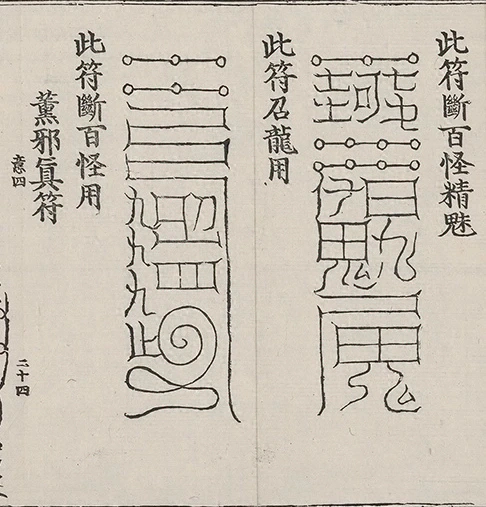 此符斷百怪精魅
此符召龍用
此符斷百怪用
薰邪真符
二十四